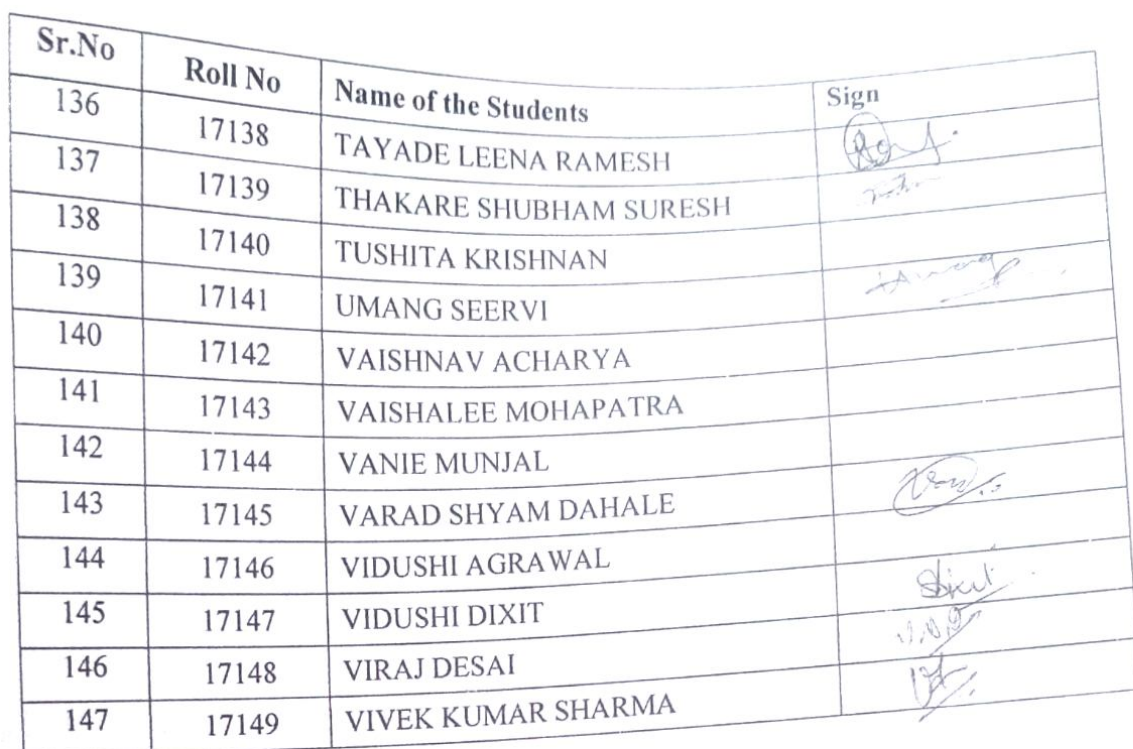 Sr.No Roll No Name of the Students Sign
136 17138 TAYADE LEENA RAMESH
137 17139 THAKARE SHUBHAM SURESH
138 17140 TUSHITA KRISHNAN
139 17141 UMANG SEERVI
140 17142 VAISHNAV ACHARYA
141 17143 VAISHALEE MOHAPATRA
142 17144 VANIE MUNJAL
143 17145 VARAD SHYAM DAHALE
144 17146 VIDUSHI AGRAWAL
145 17147 VIDUSHI DIXIT
146 17148 VIRAJ DESAI
147 17149 VIVEK KUMAR SHARMA